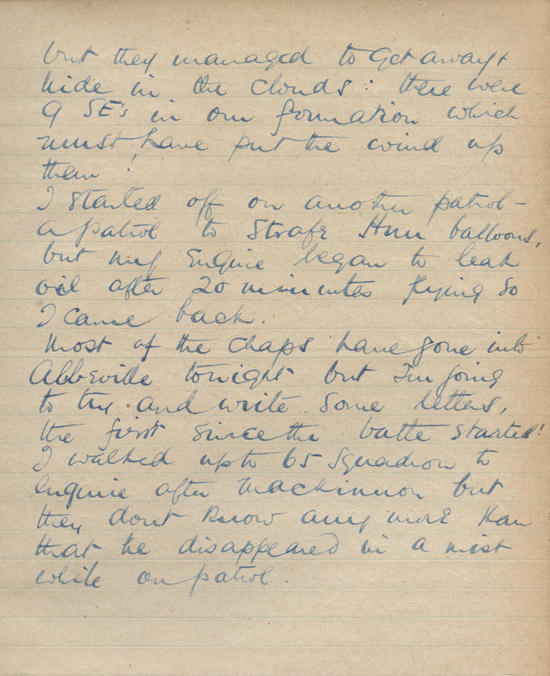 but they managed to get away &
hide in the clouds: there were
9 SE's in our formation which
must have put the wind up
them!
I started off on another patrol –
a patrol to strafe Hun balloons,
but my engine began to leak
oil after 20 minutes flying so
I came back.
Most of the chaps have gone into
Abbeville tonight but I'm going
to try and write some letters,
the first since the batte started!
I walked up to 65 Squadron to
enquire after Mackinnon but
they dont know any more than
that he disappeared in a mist
while on patrol.